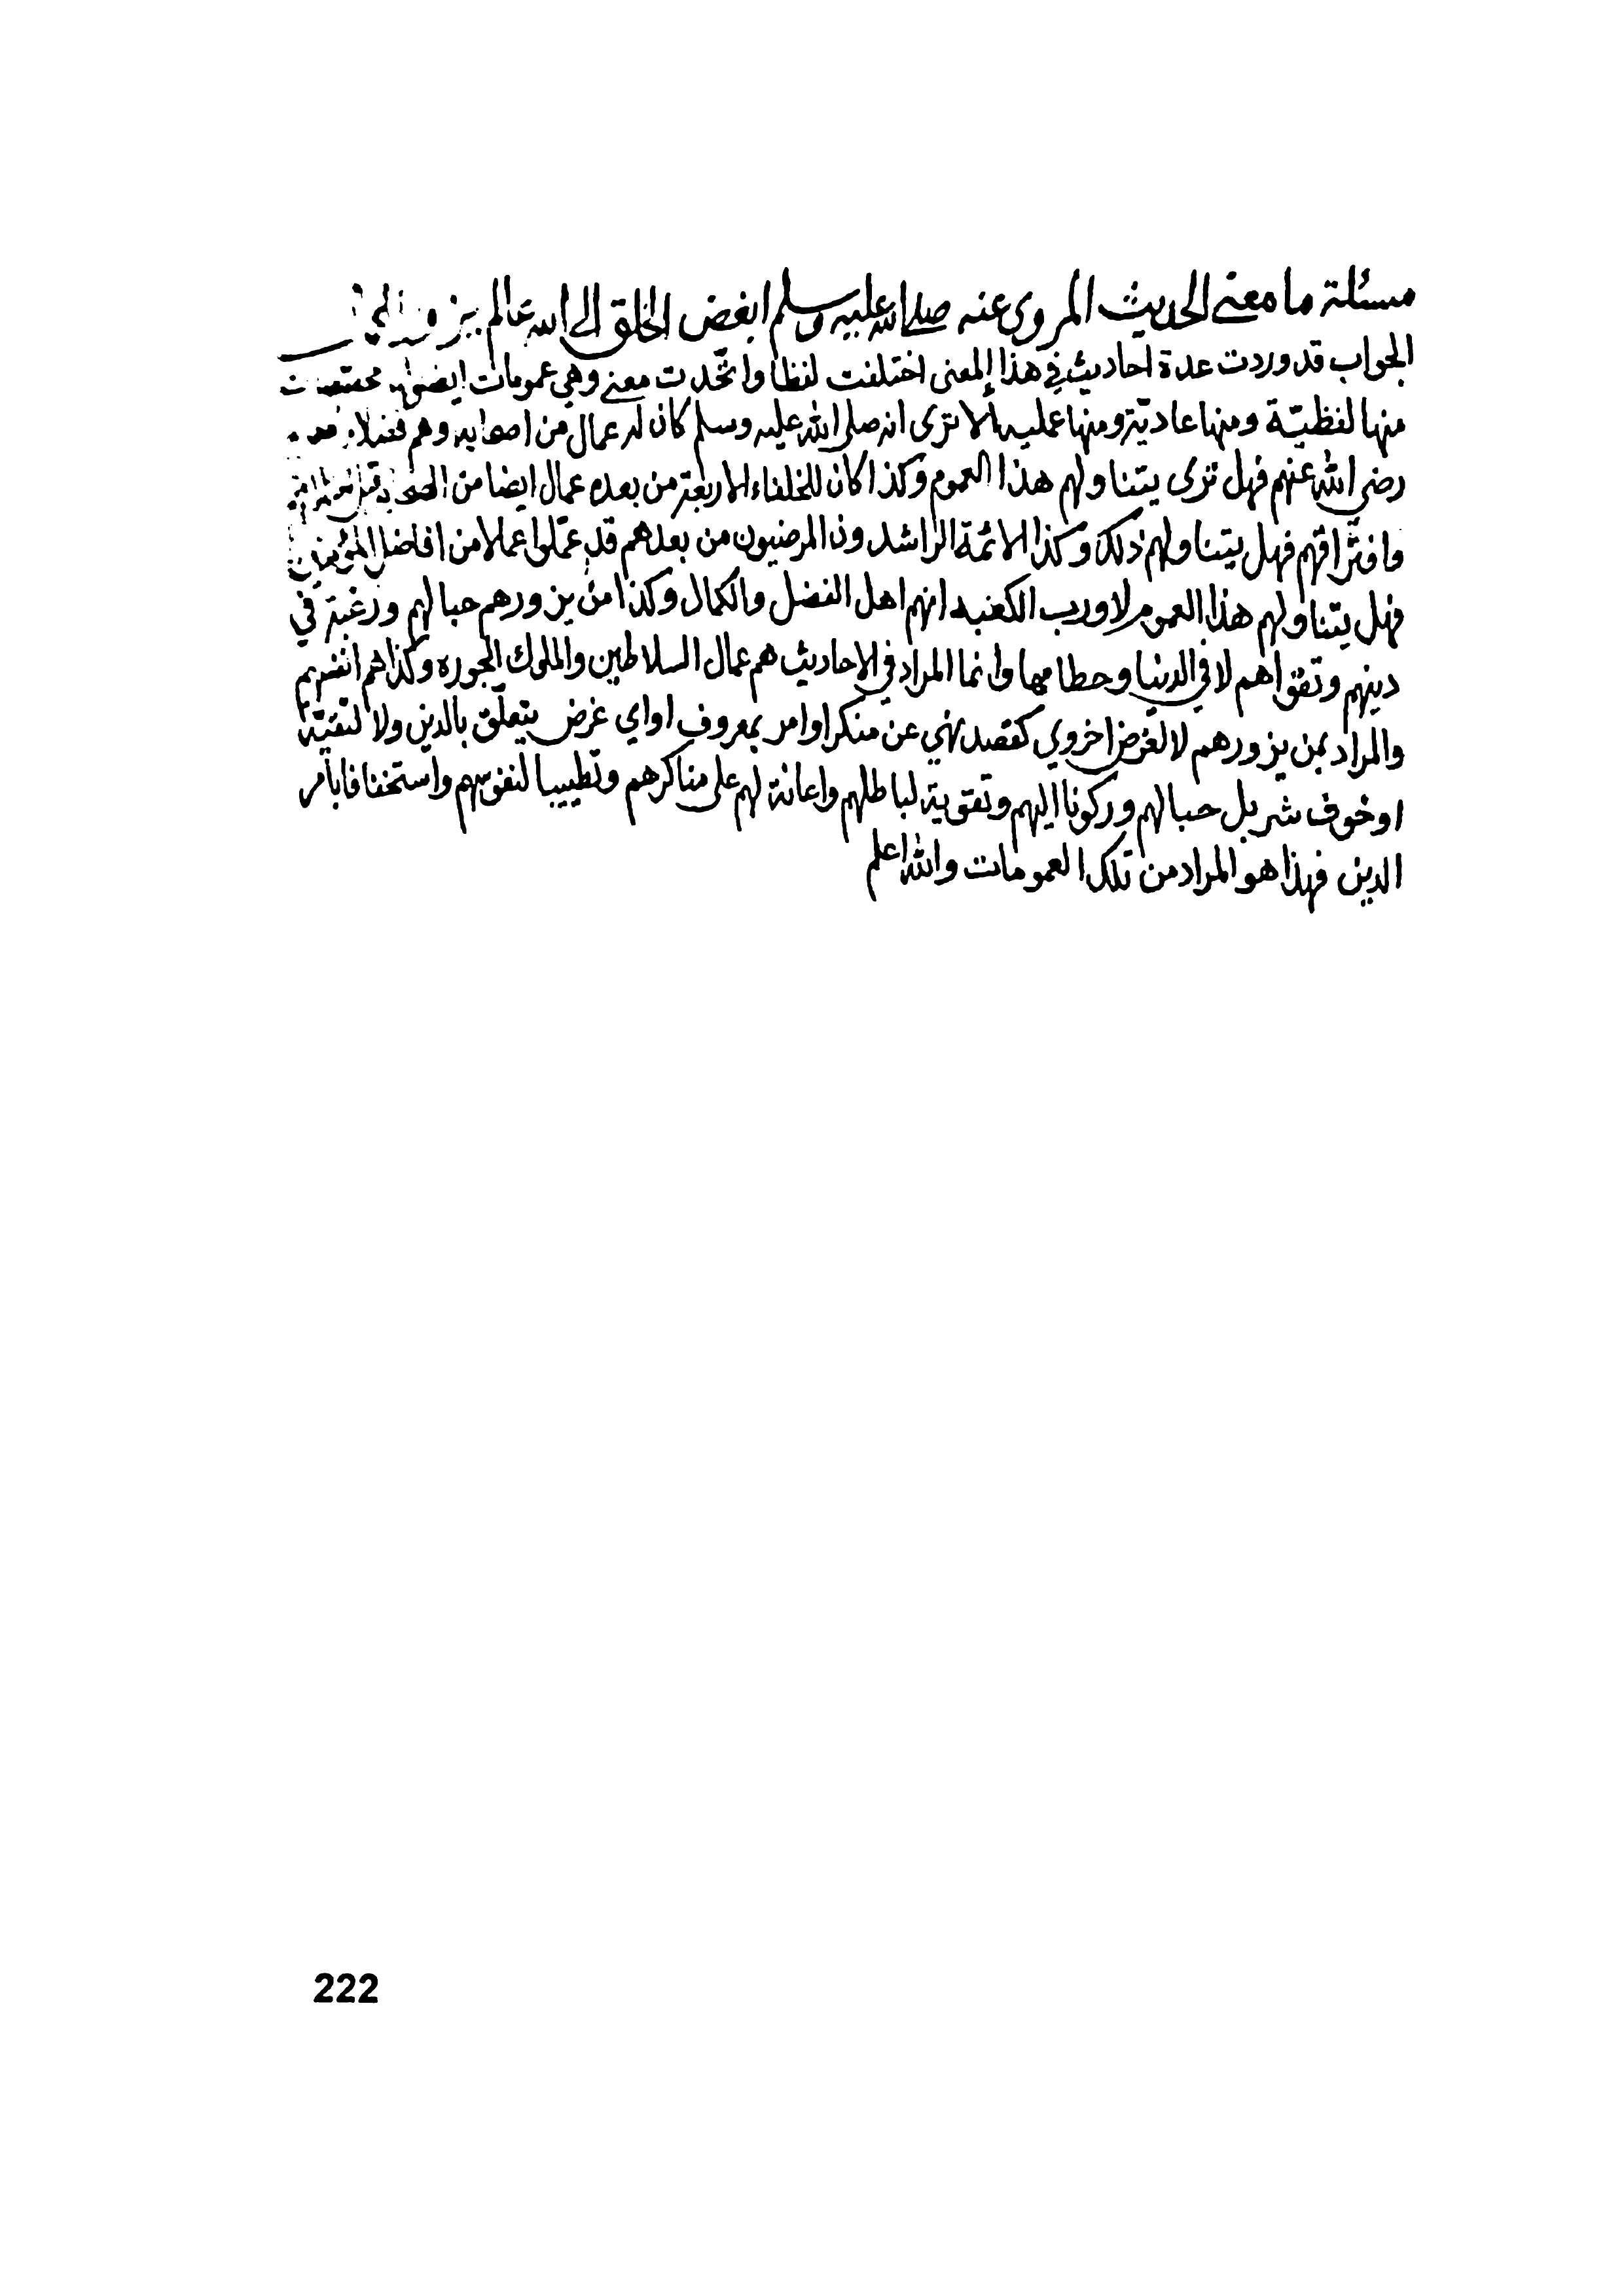 مسئلة ما معنى الحديث المروى عنه صلى الله عليه وسلم ابغض الخلق الى الله عالم يزور
الجواب قد وردت عدة احاديث في هذا المعنى اختلفت لفظا واتّحدت معنى وهي عمومات
منها لفظيّة ومنها عاديّة ومنها عمليه ألا ترى انه صلى الله عليه وسلم كان له عمال من اصحابه وهم فضلاء
رضي الله عنهم فهل ترى يتناولهم هذا العموم وكذا كان للخلفاء الاربعة من بعده عمال ايضا من الصحابة قبل
وافتراقهم فهل يتناولهم ذلك وكذا الائمة الراشدون المرضيون من بعدهم قد عمّلوا عمالا من افاضل المؤمنين
فهل يتناولهم هذا العموم لا ورب الكعبه انهم اهل الفضل والكمال وكذا من يزورهم حبا لهم ورغبة في
دينهم وتقواهم لا في الدنيا وحطامها وانما المراد في الاحاديث هم عمال السلاطين والملوك الجوره وكذا هم انفسهم
والمراد بمن يزورهم لا لغرض اخروي كقصد نهي عن منكر او امر بمعروف او اي غرض يتعلّق بالدين ولا لتقيّة
او خوف شر بل حبا لهم وركونا اليهم وتقوية لباطلهم واعانة لهم على مناكرهم وتطييبا لنفوسهم واستخفافا بأمر
الدين فهذا هو المراد من تلك العمومات والله اعلم
222